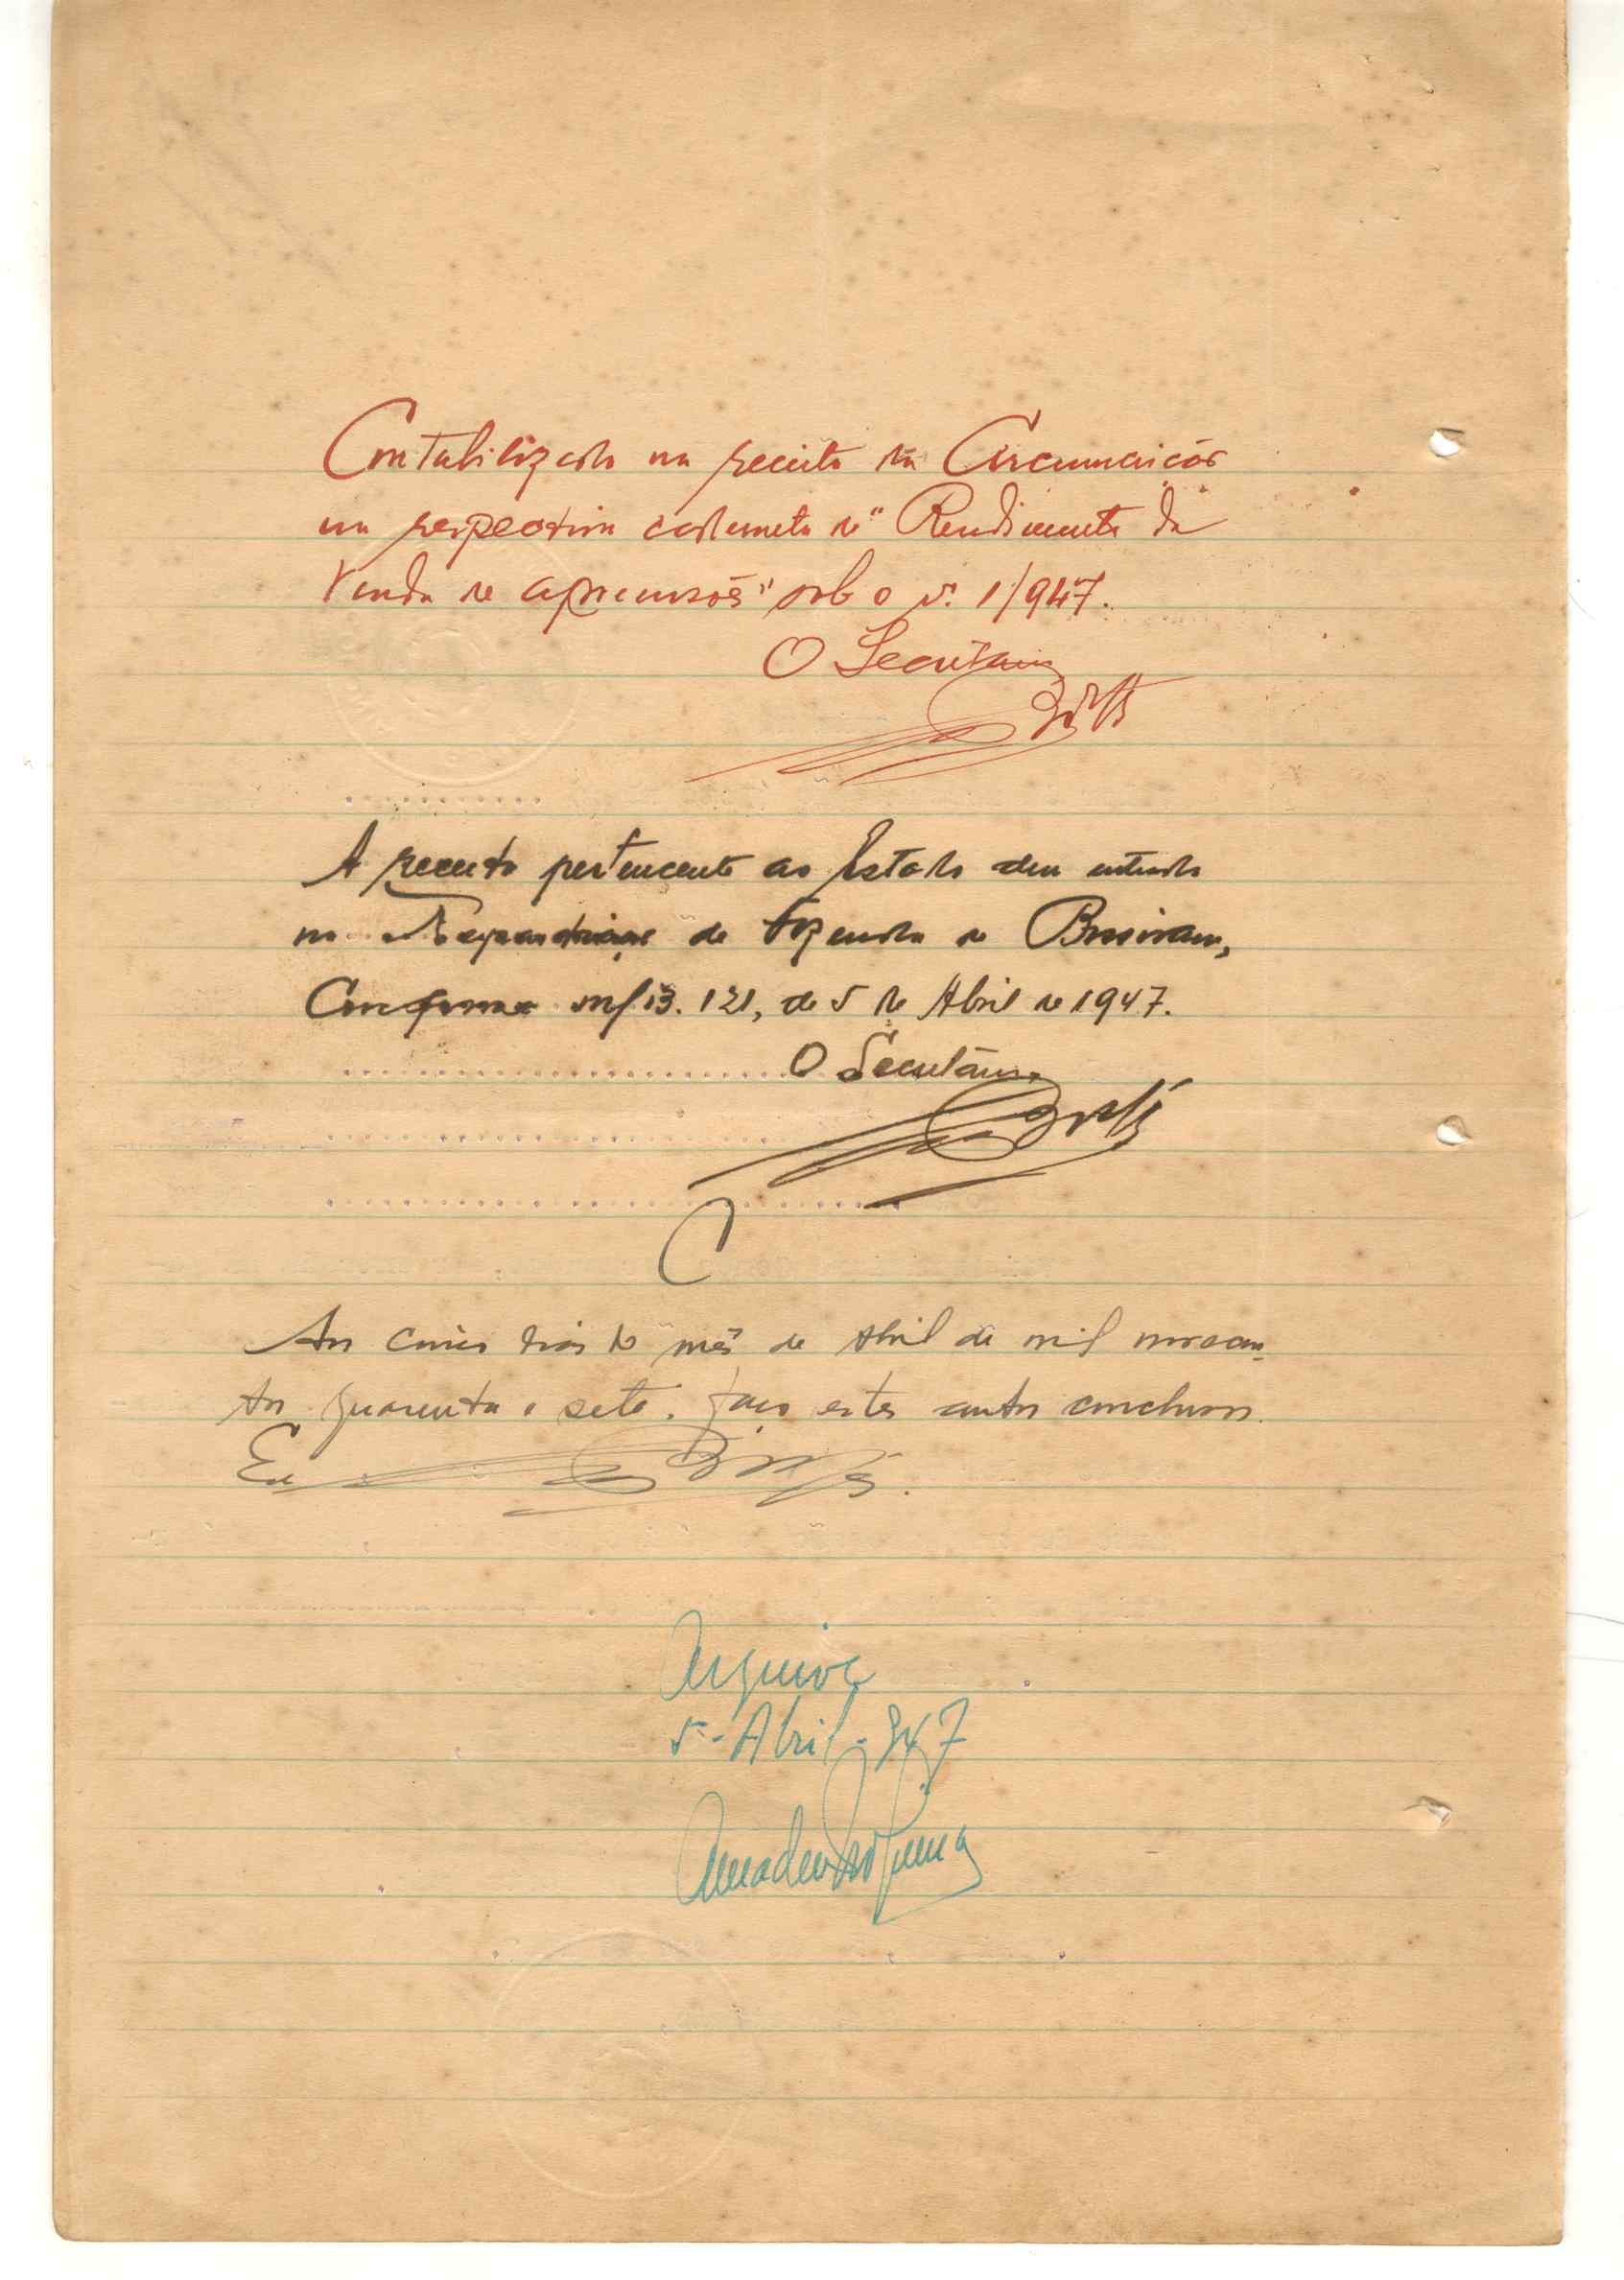 Contabilizada na receita da Circunscrição
na respectiva caderneta de "Rendimento da
Venda de apreensões" sob o nº. 1/947.
O Secretário
A receita pertencente ao Estado deu entrada
na Repartição de Fazenda de
Conforme m/B. 121, de 5 de Abril de 1947.
O Secretário
Aos cinco dias do mês de Abril de mil novecen-
tos quarenta e sete, faço estes autos conclusos.
Eu
Arquive
5-Abril-947
Amadeu